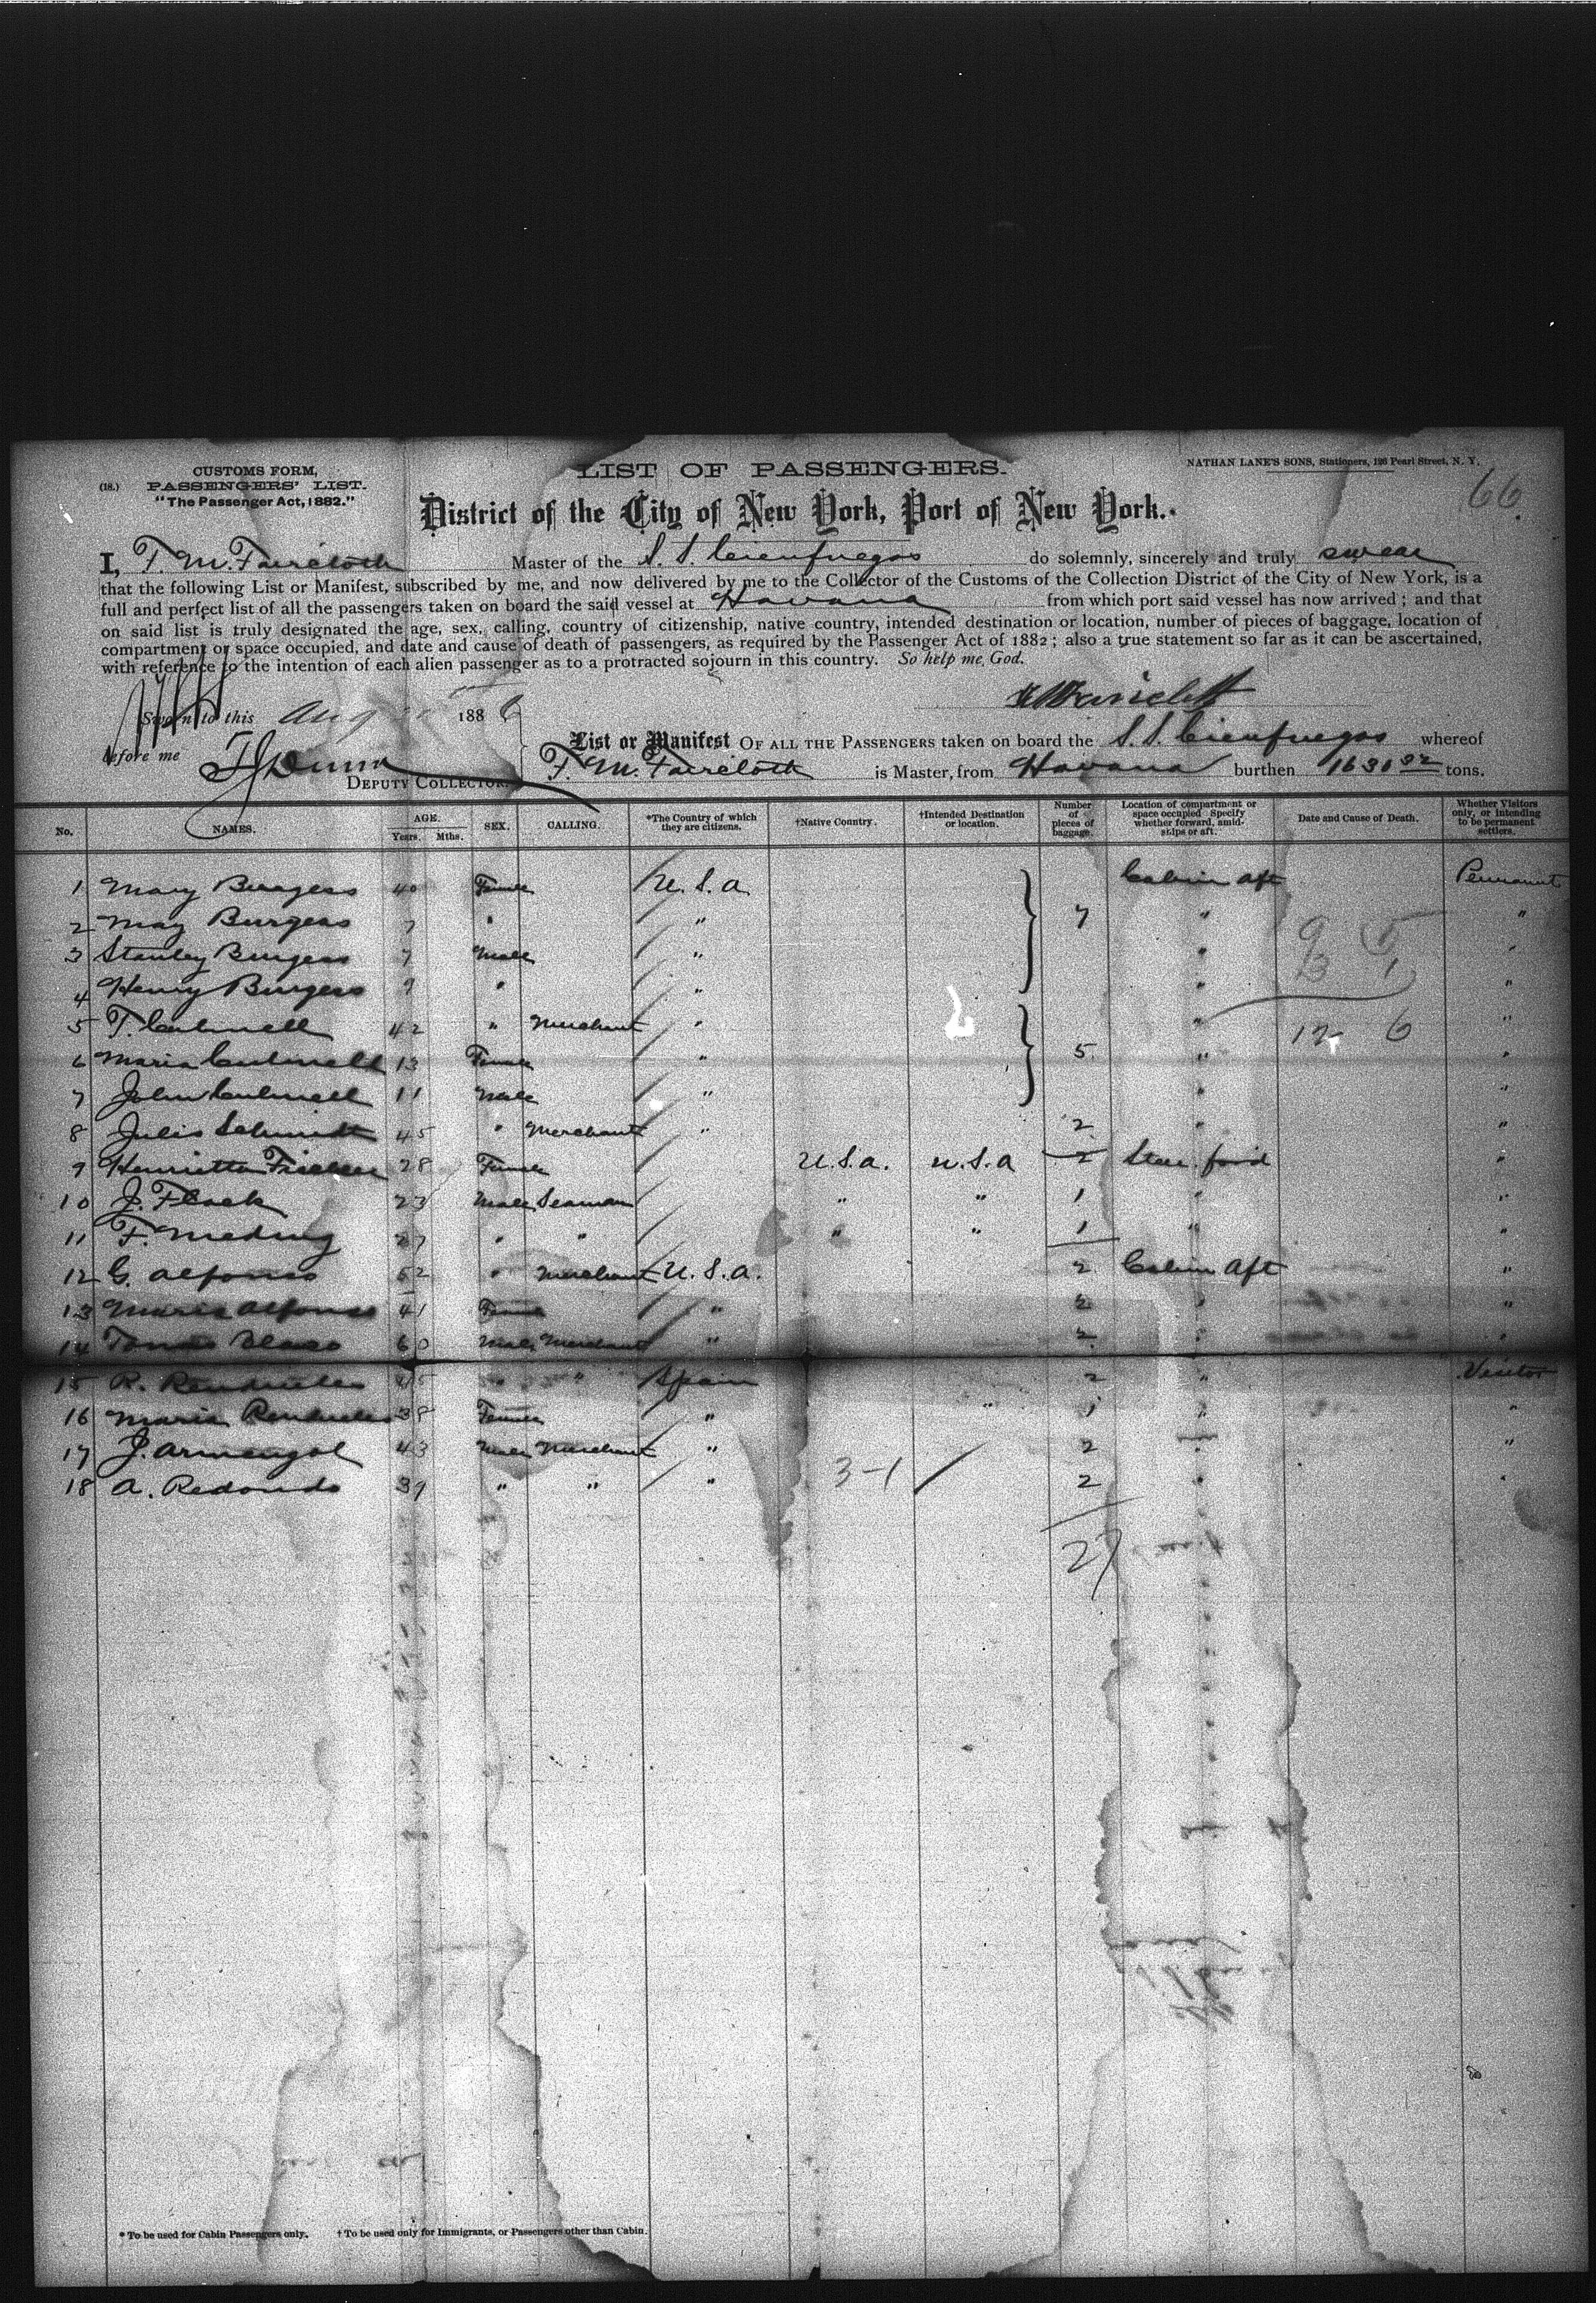 CUSTOMS FORM,
(18.) PASSENGERS' LIST.
"The Passenger Act, 1882."
LIST OF PASSENGERS.
NATHAN LANE'S SONS, Stationers, 126 Pearl Street, N. Y.
66
District of the City of New York, Port of New York.
I, F. M. Faircloth Master of the S. S. Cienfuegos do solemnly, sincerely and truly swear
that the following List or Manifest, subscribed by me, and now delivered by me to the Collector of the Customs of the Collection District of the City of New York, is a
full and perfect list of all the passengers taken on board the said vessel at Havana from which port said vessel has now arrived; and that
on said list is truly designated the age, sex, calling, country of citizenship, native country, intended destination or location, number of pieces of baggage, location of
compartment or space occupied, and date and cause of death of passengers, as required by the Passenger Act of 1882; also a true statement so far as it can be ascertained,
with reference to the intention of each alien passenger as to a protracted sojourn in this country. So help me, God.
Sworn to this Aug 188
before me
DEPUTY COLLECTOR.
List or Manifest OF ALL THE PASSENGERS taken on board the S. S. Cienfuegos whereof
F. M. Faircloth is Master, from Havana burthen 1630 32 tons.
No. NAMES. AGE. Years. Mths. SEX. CALLING. *The Country of which they are citizens. †Native Country. †Intended Destination or location. Number of pieces of baggage. Location of compartment or space occupied Specify whether forward, amidships or aft. Date and Cause of Death. Whether Visitors only, or intending to be permanent settlers.
1 Mary Burgess 40 Female U. S. a Cabin Aft
2 May Burgess 7 " " 7 " "
3 Stanley Burgess 7 Male " " "
4 Henry Burgess 9 " " " "
5 T. 42 " Merchant " " "
6 Maria 13 Female " 5 " "
7 John 11 Male " " "
8 Julis Schmidt 45 " Merchant " 2 " "
9 Henrietta Fischer 28 Female U. S. a. U. S. a 2 "
10 J. Flack 23 Male Seaman " " 1 " "
11 F. Meding 27 " " " " 1 " "
12 G. Alfonso 52 " Merchant U. S. a. 2 Cabin Aft "
13 Maria Alfonso 41 Female " 2 " "
14 Tomas 60 Male Merchant " 2 " "
15 R. Rendueles 45 " " Spain 2 " Visitor
16 Maria Rendueles 38 Female " " 1 " "
17 J. Armengol 43 Male Merchant " 2 " "
18 A. Redondo 39 " " " 3-1 2 " "
27
* To be used for Cabin Passengers only. † To be used only for Immigrants, or Passengers other than Cabin.